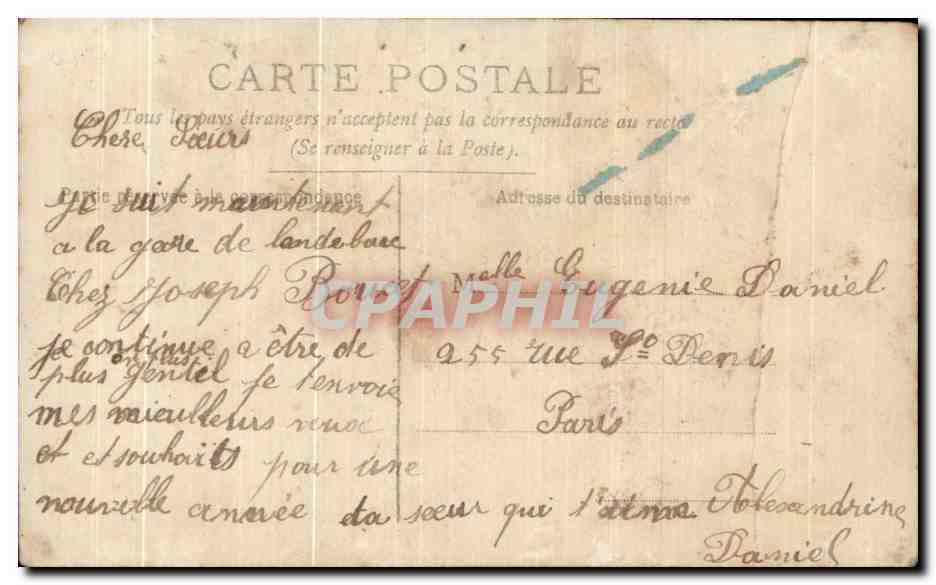 CARTE POSTALE
Tous les pays étrangers n'acceptent pas la correspondance au recto
(Se renseigner à la Poste).
Partie réservée à la correspondance
Adresse du destinataire
Chere Sœurs
Je suit maintenant
a la gare de landebaee
Chez Joseph
je continue a être de
plus en plus
gentel je t'envoie
mes mieulleurs veux
et et souhaits pour une
nouvelle année ta sœur qui t'aime Alexandrine
Daniel
Melle Eugenie Daniel
255 rue St Denis
Paris
CPAPHIL